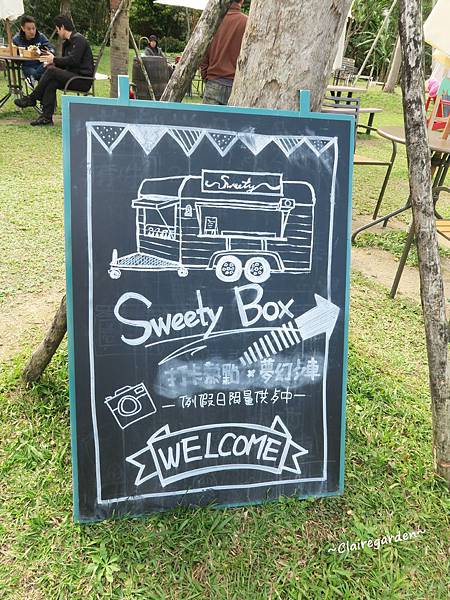 Sweety
Sweety Box
打卡熱點 × 夢幻卡車
— 例假日限量供点中 —
WELCOME
~Clairegarden~